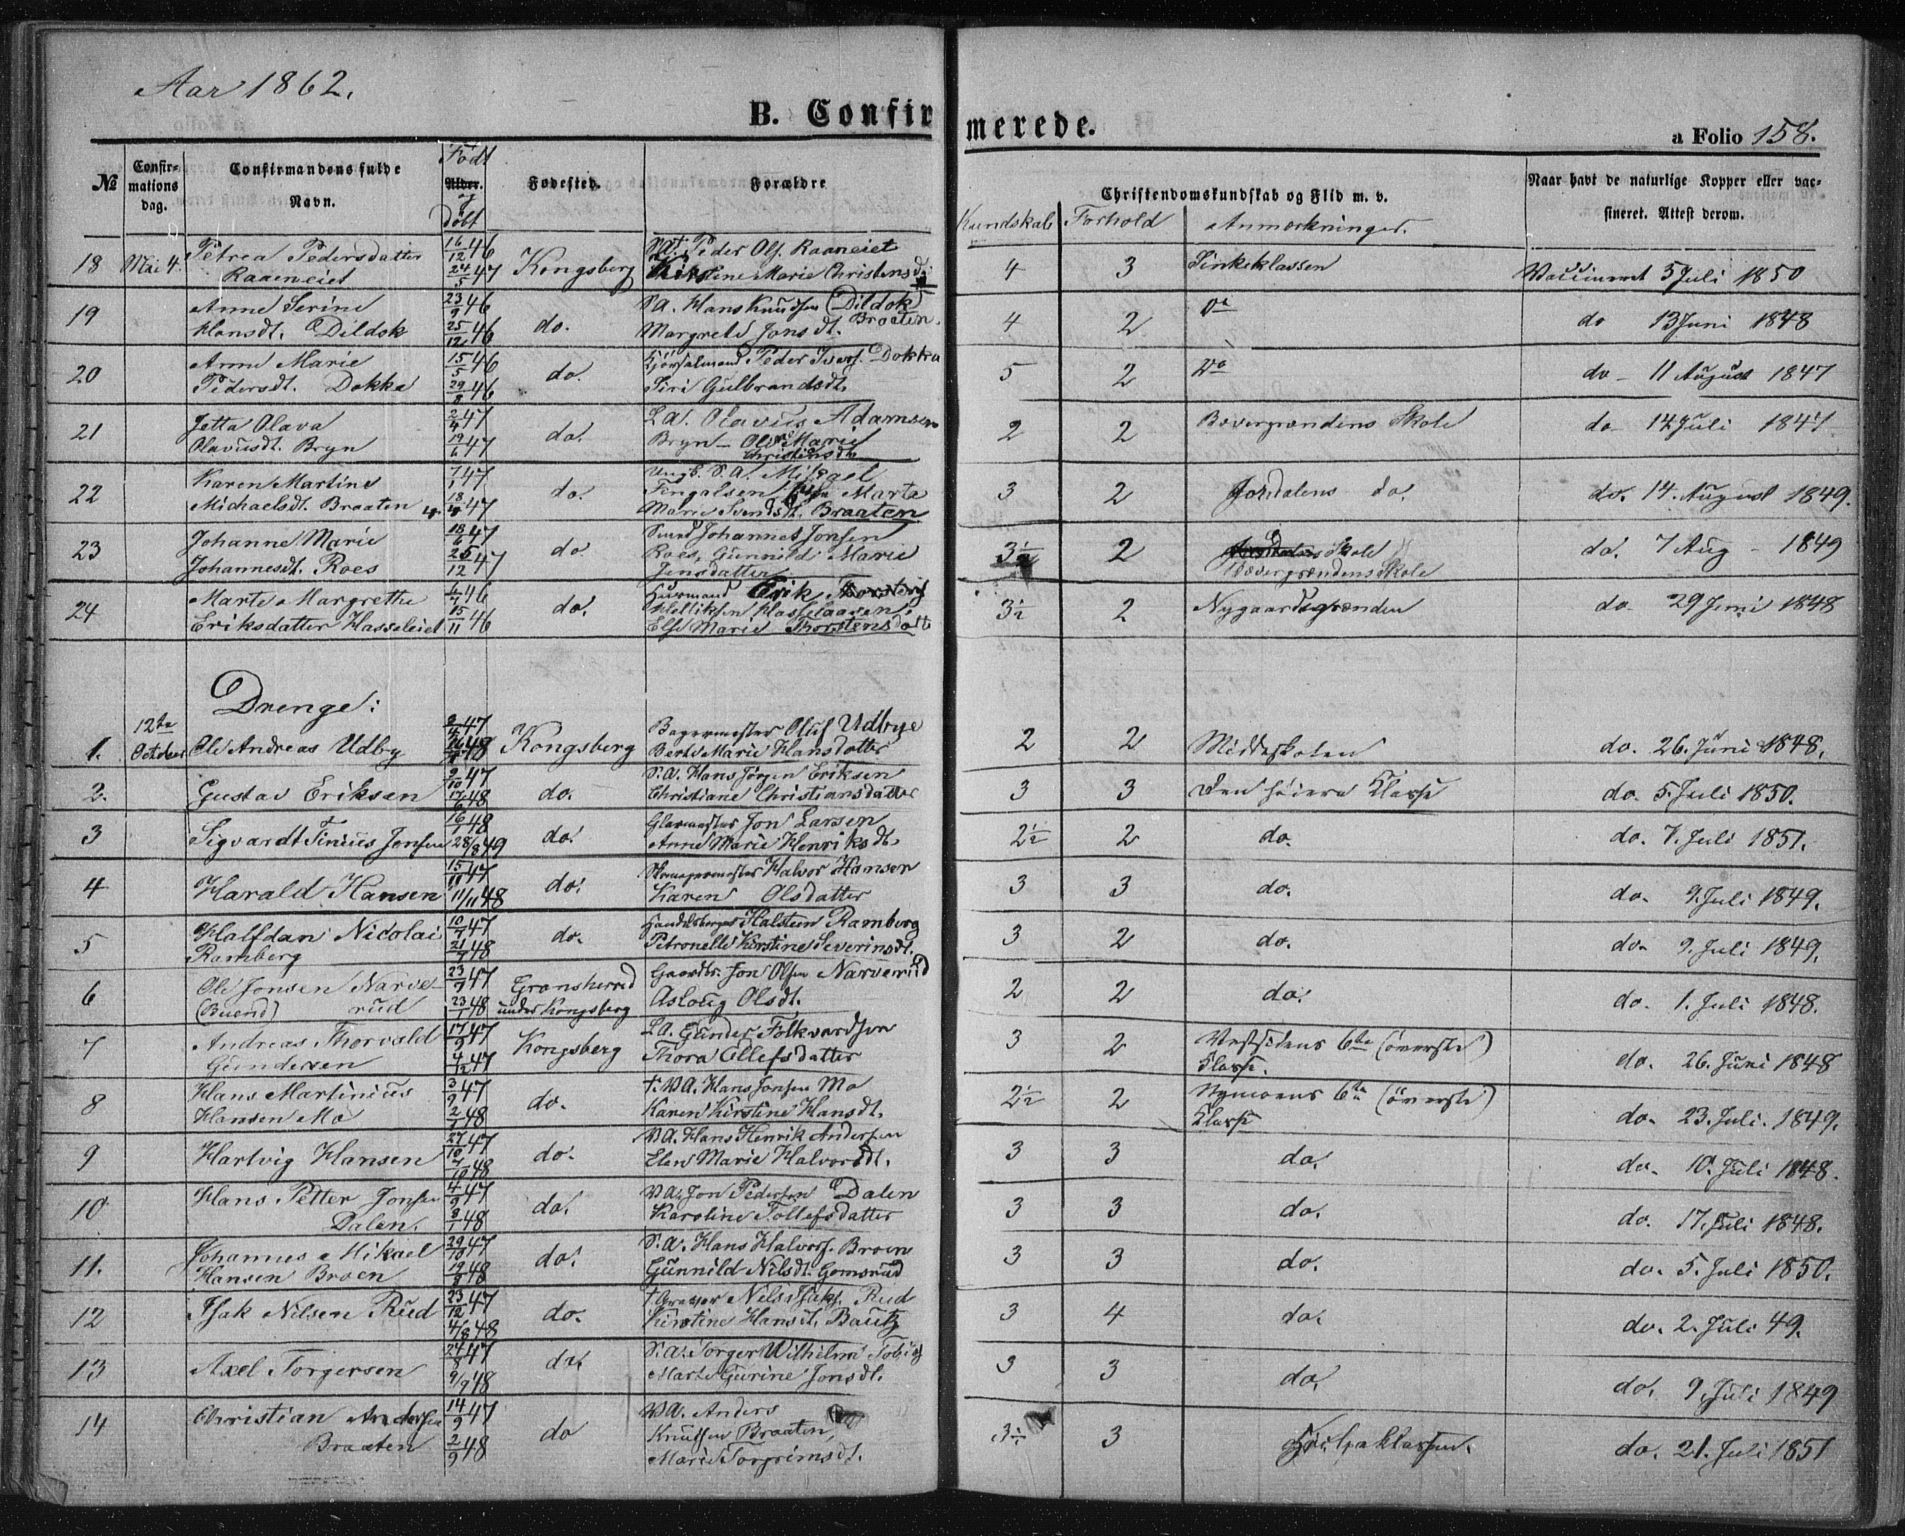 Aar 1862.
B. Confirmerede.
a Folio 158.
№
Confirmations dag.
Confirmandens fulde Navn.
Født
Alder.
og
Døbt
Fødested.
Forældre
Christendomskundskab og Flid m. v.
Kundskab
Forhold
Anmærkninger.
Naar havt de naturlige Kopper eller vaccineret. Attest derom.
18 Mai 4. Petrea Pedersdatter 16/12 46 Kongsberg Peder Ols. Raaneiet 4 3 Sinkeklassen Vaccineret 5 Juli 1850
Raaeneiet 24/5 47 Kirstine Marie Christensd.
19 Anne Serine 23/9 46 do. S.A. Hans Knudsen (Dildok) 4 2 Do do 13 Juni 1848
Hansdt. Dildok 25/12 46 Margrete Jonsdt. Braaten.
20 Anne Marie 15/5 46 do. Peder Ivers. Dokka 5 2 Do do - 11 August 1847
Pedersdt. Dokka 29/8 46 Siri Gulbrandsdt.
21 Jetta Olava 2/4 47 do. L.A. Olavus Adamsen 2 2 Bævergrændens Skole do 14 Juli 1847
Olavusdt. Bryn 19/6 47 Bryn - Marie
Christensdt.
22 Karen Martine 7/1 47 do. Ungk. S.A. Mikael 3 2 Jondalens do. do. 14. August 1849.
Michaelsdt. Braaten 18/4 47 Fingalsen Marte
Marie Svendsdt. Braaten
23 Johanne Marie 18/6 47 do. Johannes Jonsen 3½ 2 Skole do. 7 Aug - 1849
Johannesdt. Roes 25/12 47 Roes, Gunnild Marie Bævergrændens Skole
Jensdatter
24 Marte Margrethe 4/7 46 do. Huusmand Erik 3½ 2 Nygaardsgrænden do - 29 Juni 1848
Eriksdatter Hasseleiet 15/11 46 Kittilsen
Else Marie Thorstensdatte
Drenge:
1. 12te October Ole Andreas Udby 47 Kongsberg Bagermester Oluf Udbye 2 2 Middelskolen do. 26. Juni 1848.
48 Berte Marie Hansdatter
2. Gustav Eriksen 9/10 47 do. S.A. Hans Jørgen Eriksen 3 3 Den høiere Klasse do. 5. Juli 1850.
17/6 48 Christiane Christiansdatter
3 Sigvardt Tinius Jonsen 16/1 48 do. Glarmester Jon Larsen 2½ 2 do. do. 7. Juli 1851.
28/8 49 Anne Marie Henriksdt.
4 Harald Hansen 15/11 47 do. Halvor Hansen 3 3 do. do. 9. Juli 1849.
11/11 48 Karen Olsdatter
5 Halfdan Nicolai 10/7 47 do. Handelsborger Halsten Ramberg 3 2 do. do. 9. Juli 1849.
Ramberg 21/7 48 Petronelle Kirstine Severinsdt.
6 Ole Jonsen Narve- 23/7 47 Gransherred Gaardbr. Jon Olsen Narverud 2 2 do. do. 1. Juli 1848.
(Buend) rud 23/1 48 under Kongsberg Aslaug Olsdt.
7 Andreas Thorvald 17/9 47 Kongsberg L.A. Gunder Folkvardsen 3 2 Vestsidens 6te (øverste) do. 26. Juni 1848
Gundersen 4/12 47 Thora Ellefsdatter Klasse.
8 Hans Martinius 3/9 47 do. †. V.A. Hans Jonsen Mo 2½ 2 Nymoens 6te (øverste) do. 23. Juli. 1849.
Hansen Mo 2/1 48 Karen Kirstine Hansdt. Klasse
9 Hartvig Hansen 27/10 47 do. V.A. Hans Henrik Andersen 3 3 do. do. 10. Juli 1848.
7/10 48 Elen Marie Halvorsdt.
10 Hans Petter Jonsen 4/9 47 do. V.A. Jon Pedersen Dalen 3 3 do. do. 17. Juli 1848.
Dalen. 3/1 48 Karoline Tollefsdatter
11. Johannes Mikael 29/10 47 do. S.A. Hans Halvors. Broen 3 3 do. do. 5. Juli 1850.
Hansen Broen 19/8 48 Gunnild Nilsdt. Gomsrud
12 Isak Nilsen Rud 23/12 47 do. † Nils Isaks. Rud 3 4 do. do. 2. Juli 49.
4/8 48 Kirstine Hansdt. Bautz
13 Axel Torgersen 24/8 47 do. S.A. Torger Wilhelm Tobias 3 3 do. do. 9. Juli 1849
9/9 48 Marte Gurine Jonsdt.
14 Christian Andersen 14/9 47 do V.A. Anders 3½ 3 do. 21. Juli 1851
Braaten 2/9 48 Knutsen Braaten,
Marie Torgrimsdt.